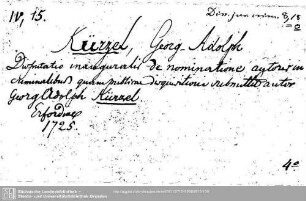 IV, 15.
Kürzel, Georg Adolph
Disputatio inauguralis de nominatione autorum in
criminalibus quam publicae disquisitioni submittet autor
Georg Adolph Kürzel
Erfordiae
1725.
4°
Sächsische Landesbibliothek -
Staats- und Universitätsbibliothek Dresden